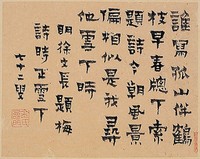 誰寫孤山伴鶴
枝早春牕下索
題詩今朝風景
偏相似是我尋
他雪下時
明徐文長題梅
詩時正雪下
七十二叟